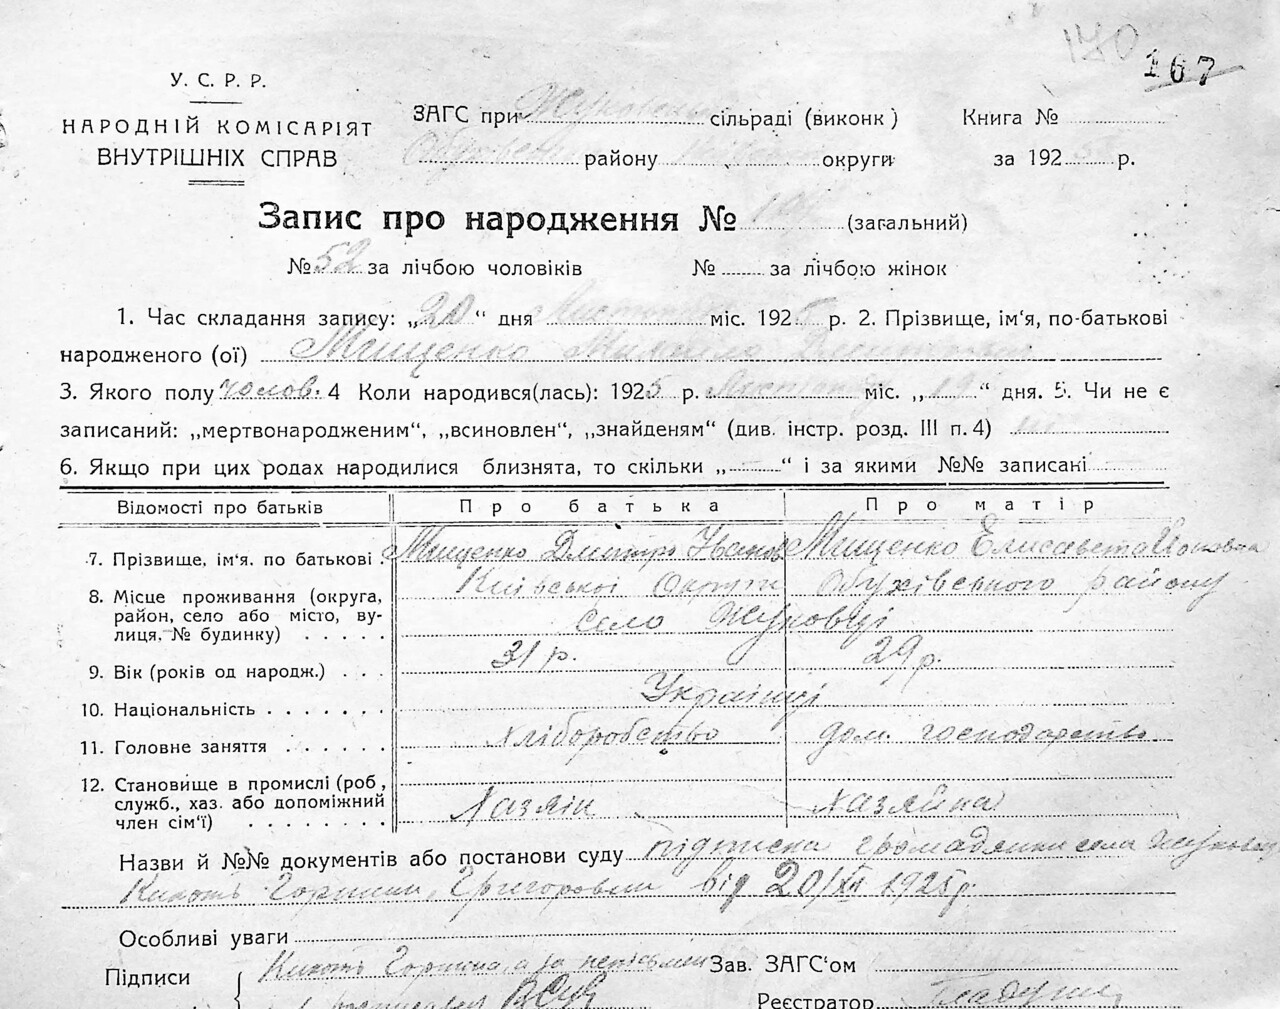 170
167
У. С. Р. Р.
НАРОДНІЙ КОМІСАРІЯТ
ВНУТРІШНІХ СПРАВ
ЗАГС при сільраді (виконк)
району округи
Книга №
за 192 р.
Запис про народження № (загальний)
№ 52 за лічбою чоловіків № за лічбою жінок
1. Час складання запису: „20“ дня Листопада міс. 1925 р. 2. Прізвище, ім'я, по-батькові
народженого (ої) Мищенко Михайло
3. Якого полу чолов. 4 Коли народився(лась): 1925 р. Листопаду міс. „19“ дня. 5. Чи не є
записаний: „мертвонародженим“, „всиновлен“, „знайденям“ (див. інстр. розд. III п. 4)
6. Якщо при цих родах народилися близнята, то скільки „—“ і за якими №№ записані
Відомості про батьків Про батька Про матір
7. Прізвище, ім'я. по батькові Мищенко Дмитро Іванов Мищенко Елисавета
8. Місце проживання (округа, район, село або місто, вулиця. № будинку) Київської Округи Обухівського району
село Жуковці
9. Вік (років од народж.) 31 р. 29 р.
10. Національність Українці
11. Головне заняття хліборобство дом. господарство
12. Становище в промислі (роб, служб., хаз. або допоміжний член сім'ї) Хазяїн Хазяйка
Назви й №№ документів або постанови суду підписка громадянки села Жуковці
Кикоть Горпини Григоровни від 20/XI 1925 р.
Особливі уваги
Підписи Кикоть Горпина, а за неписьмен
Зав. ЗАГС'ом
Реєстратор